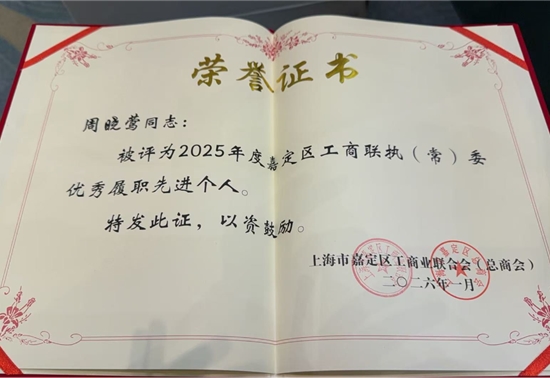 荣誉证书
周晓莺同志：
被评为2025年度嘉定区工商联执（常）委
优秀履职先进个人。
特发此证，以资鼓励。
上海市嘉定区工商业联合会（总商会）
二〇二六年一月